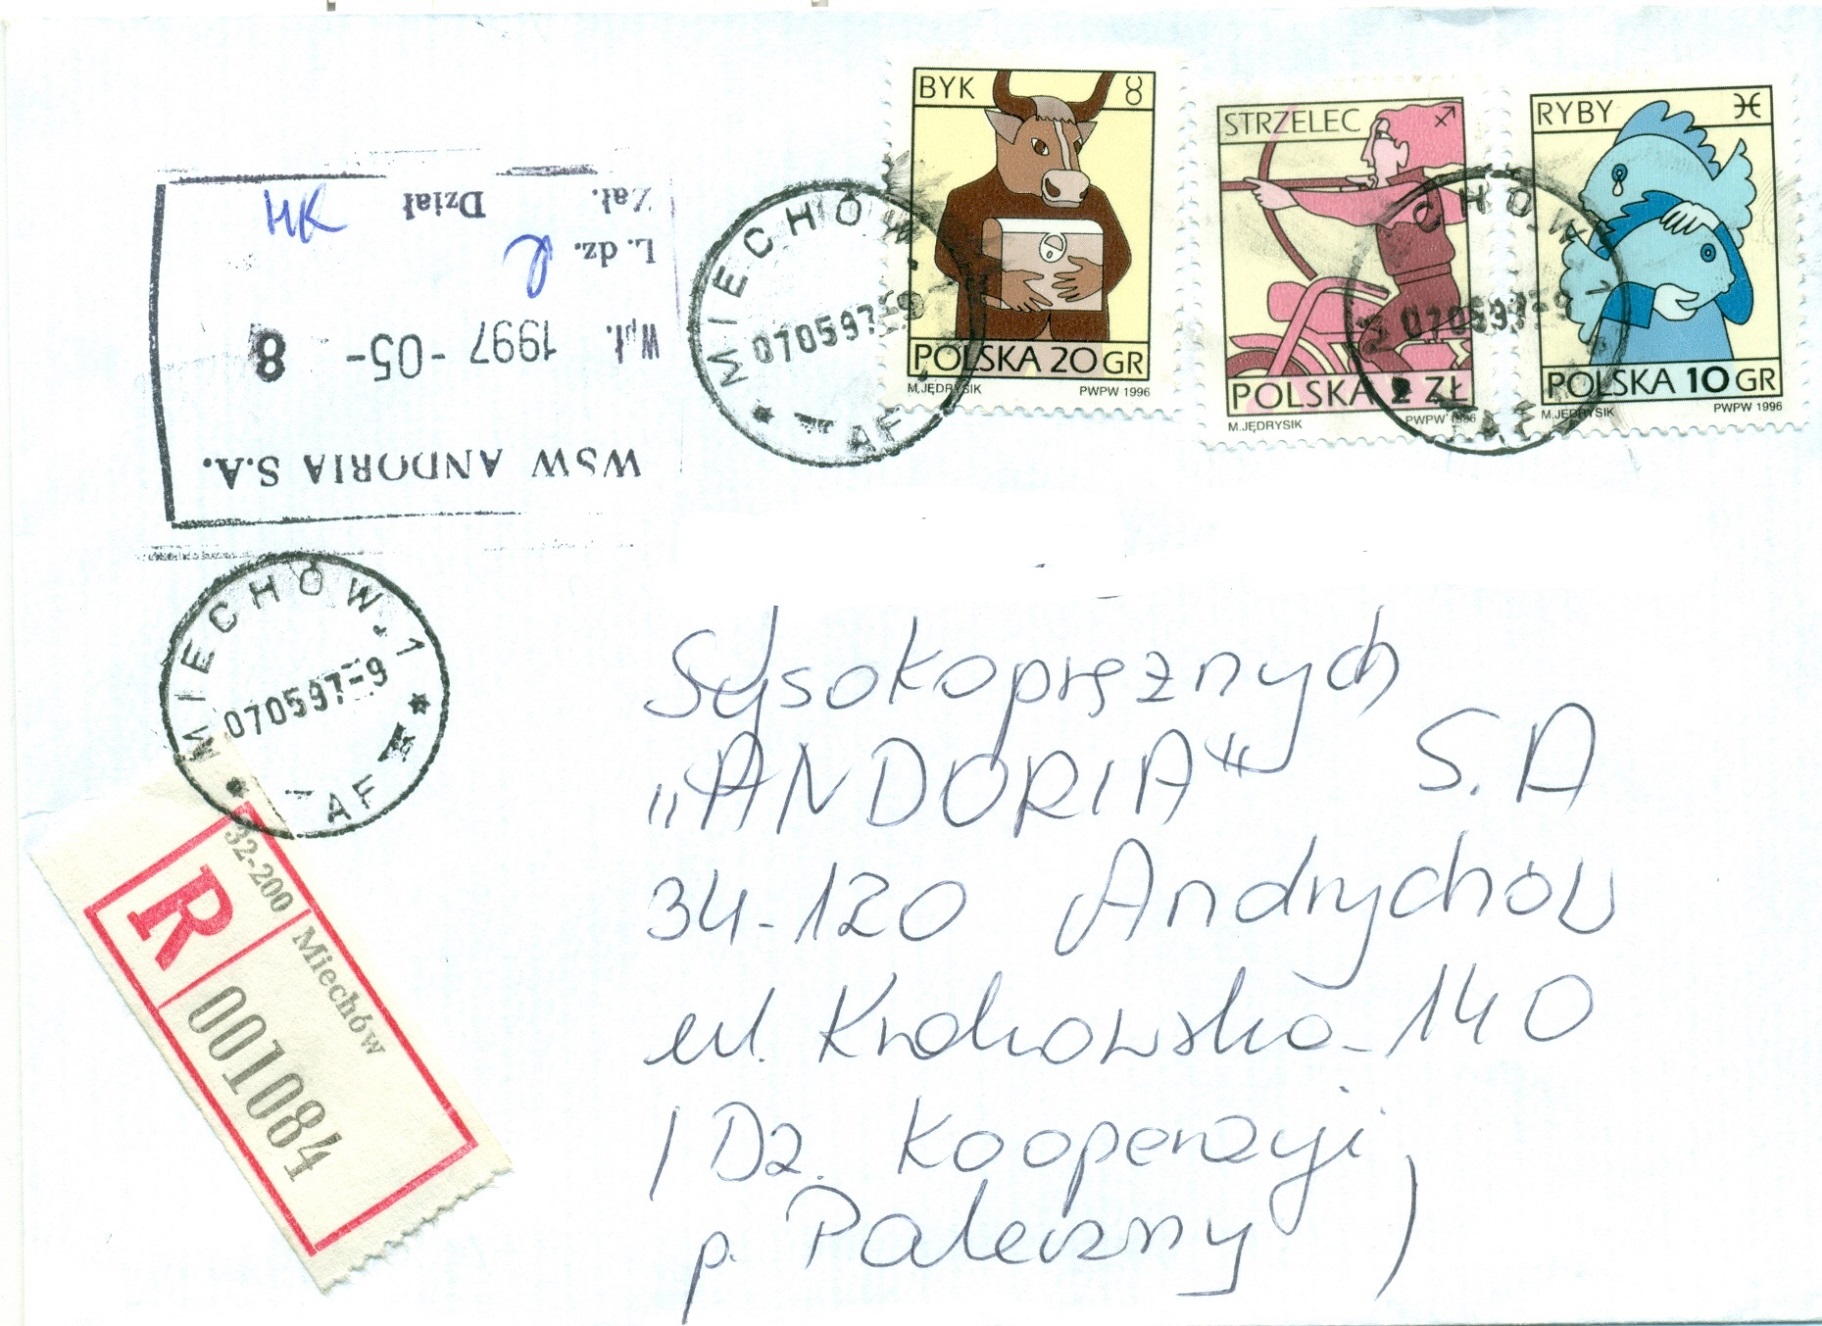 BYK ♉
POLSKA 20 GR
M.JĘDRYSIK PWPW 1996
STRZELEC ♐
POLSKA 2 ZŁ
M.JĘDRYSIK PWPW 1996
RYBY ♓
POLSKA 10 GR
M.JĘDRYSIK PWPW 1996
MIECHÓW 1
070597-9
AF
MIECHÓW 1
070597-9
AF
WSW ANDORIA S.A.
Wpł. 1997 -05- 8
L. dz.
Zał. Dział HK
MIECHÓW. 1
070597-9
AF
32-200 Miechów
R 001084
Wysokoprężnych
„ANDORIA" S.A
34-120 Andrychów
ul. Krakowska 140
/Dz. Kooperacji
p. Paleczny )